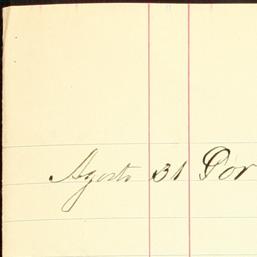 Agosto 31 Por